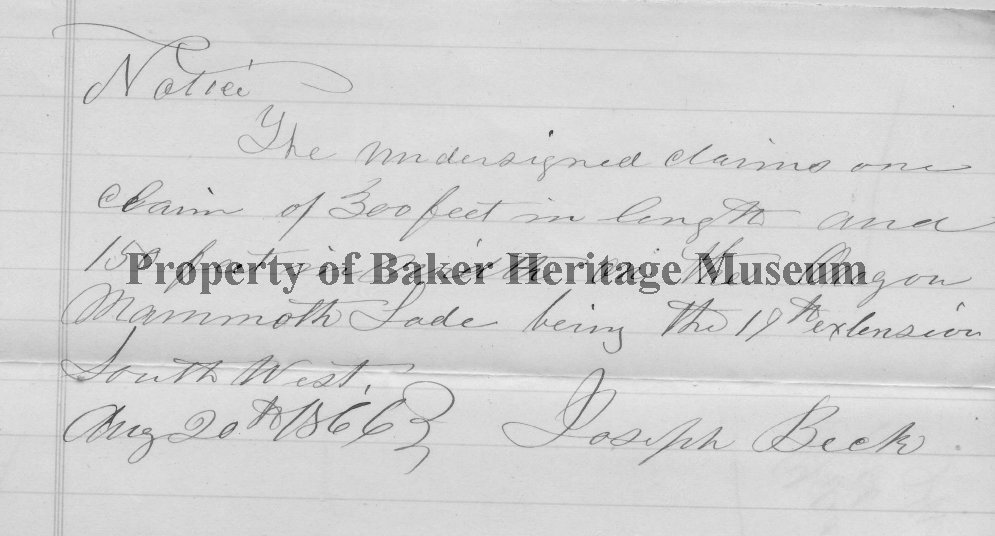 Notice
The undersigned claims one
claim of 300 feet in length and
150 feet in width on the Oregon
Property of Baker Heritage Museum
Mammoth Lode being the 19th extension
South West.
Aug 20th 1866
Joseph Beck